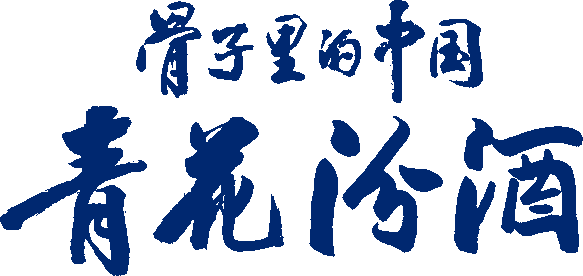 骨子里的中国
青花汾酒